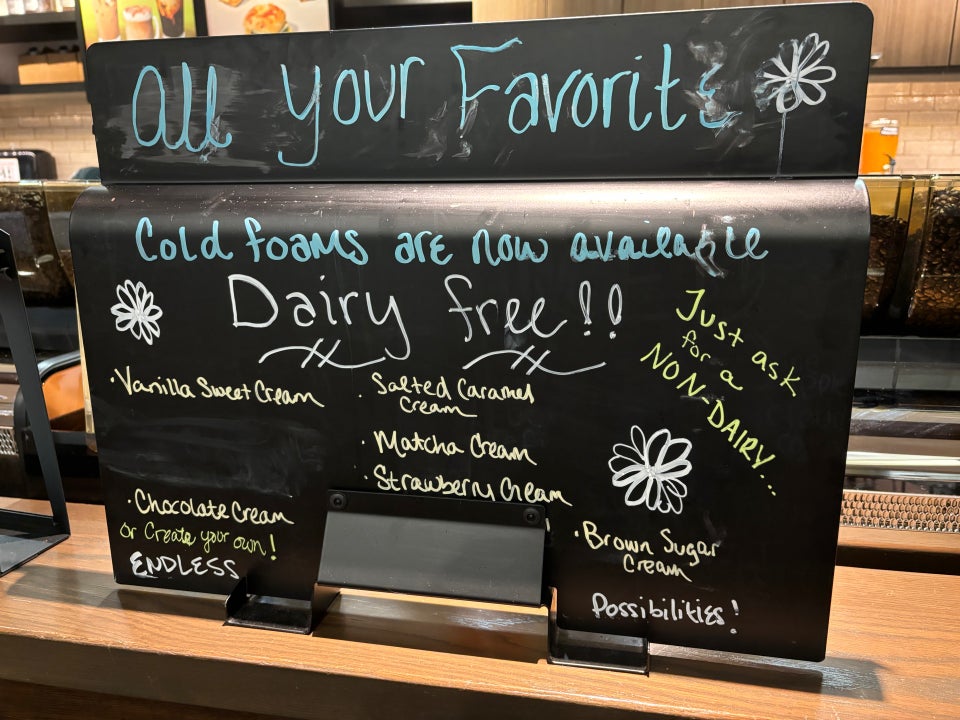 All your Favorite
Cold foams are now available
Dairy free!!
Just ask
for a
NON-DAIRY...
·Vanilla Sweet Cream
· Salted Caramel
Cream
· Matcha Cream
· Strawberry Cream
·Chocolate Cream
or Create your own!
ENDLESS
·Brown Sugar
Cream
Possibilities!